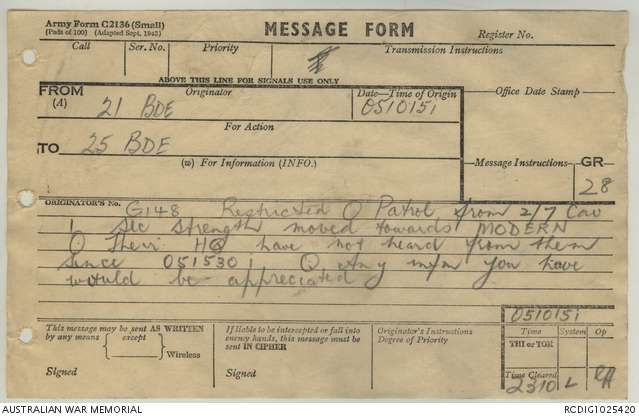 Army Form C2136 (Small)
(Pads of 100) (Adapted Sept. 1943)
MESSAGE FORM
Register No.
Call Ser. No. Priority Transmission Instructions
ABOVE THIS LINE FOR SIGNALS USE ONLY
FROM
(A)
Originator
21 BDE
Date—Time of Origin
051015I
Office Date Stamp
For Action
TO
25 BDE
(w) For Information (INFO.)
Message Instructions
GR
28
ORIGINATOR'S No.
G148 Restricted O Patrol from 2/7 Cav
1 Sec strength moved towards MODERN
O Their HQ have not heard from them
since 051530I O Any infm you have
would be appreciated
051015I
This message may be sent AS WRITTEN
by any means except
Wireless
Signed
If liable to be intercepted or fall into
enemy hands, this message must be
sent IN CIPHER
Signed
Originator's Instructions
Degree of Priority
Time System Op
THI or TOR
Time Cleared
2310 L
AUSTRALIAN WAR MEMORIAL
RCDIG1025420